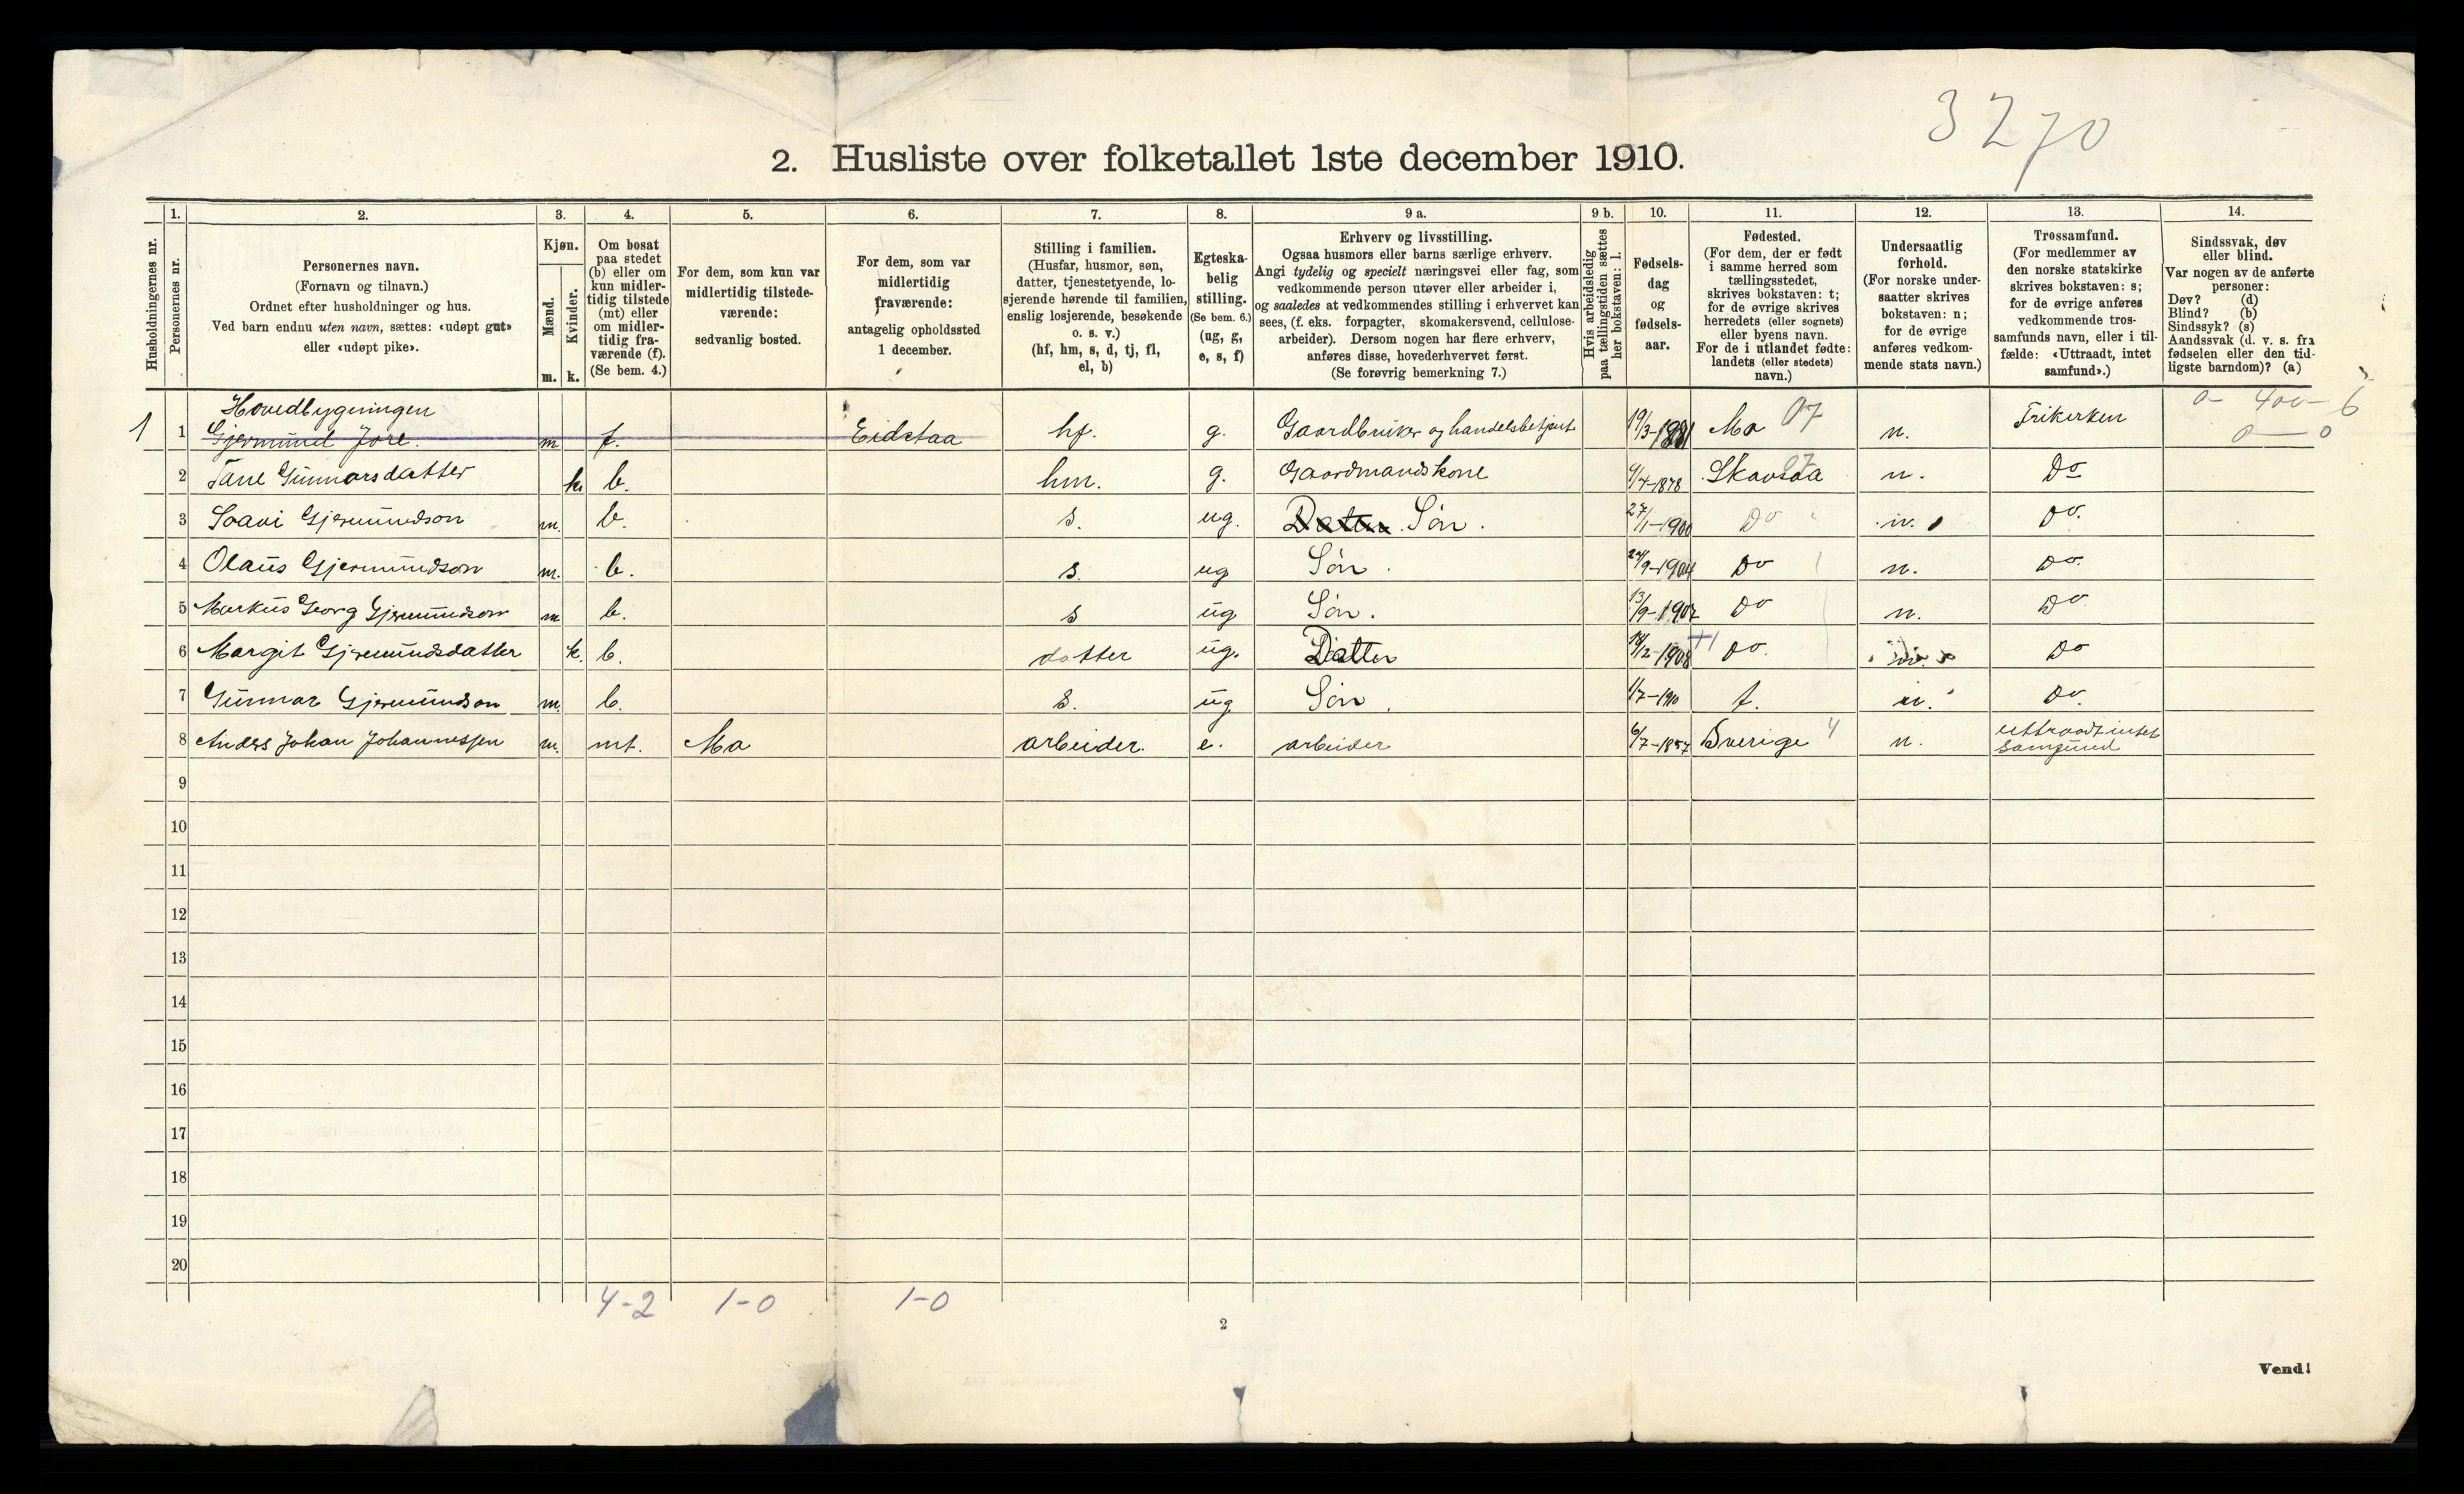 3270
2. Husliste over folketallet 1ste december 1910.
1. 2. 3. 4. 5. 6. 7. 8. 9 a. 9 b. 10. 11. 12. 13. 14.
Husholdningernes nr.
Personernes nr.
Personernes navn.
(Fornavn og tilnavn.)
Ordnet efter husholdninger og hus.
Ved barn endnu uten navn, sættes: «udøpt gut»
eller «udøpt pike».
Kjøn.
Mænd.
Kvinder.
m. k.
Om bosat
paa stedet
(b) eller om
kun midler-
tidig tilstede
(mt) eller
om midler-
tidig fra-
værende (f).
(Se bem. 4.)
For dem, som kun var
midlertidig tilstede-
værende:
sedvanlig bosted.
For dem, som var
midlertidig
fraværende:
antagelig opholdssted
1 december.
Stilling i familien.
(Husfar, husmor, søn,
datter, tjenestetyende, lo-
sjerende hørende til familien,
enslig losjerende, besøkende
o. s. v.)
(hf, hm, s, d, tj, fl,
el, b)
Egteska-
belig
stilling.
(Se bem. 6.)
(ug, g,
e, s, f)
Erhverv og livsstilling.
Ogsaa husmors eller barns særlige erhverv.
Angi tydelig og specielt næringsvei eller fag, som
vedkommende person utøver eller arbeider i,
og saaledes at vedkommendes stilling i erhvervet kan
sees, (f. eks. forpagter, skomakersvend, cellulose-
arbeider). Dersom nogen har flere erhverv,
anføres disse, hovederhvervet først.
(Se forøvrig bemerkning 7.)
Hvis arbeidsledig
paa tællingstiden sættes
her bokstaven: l.
Fødsels-
dag
og
fødsels-
aar.
Fødested.
(For dem, der er født
i samme herred som
tællingsstedet,
skrives bokstaven: t;
for de øvrige skrives
herredets (eller sognets)
eller byens navn.
For de i utlandet fødte:
landets (eller stedets)
navn.)
Undersaatlig
forhold.
(For norske under-
saatter skrives
bokstaven: n;
for de øvrige
anføres vedkom-
mende stats navn.)
Trossamfund.
(For medlemmer av
den norske statskirke
skrives bokstaven: s;
for de øvrige anføres
vedkommende tros-
samfunds navn, eller i til-
fælde: «Uttraadt, intet
samfund».)
Sindssvak, døv
eller blind.
Var nogen av de anførte
personer:
Døv? (d)
Blind? (b)
Sindssyk? (s)
Aandssvak (d. v. s. fra
fødselen eller den tid-
ligste barndom)? (a)
Hovedbygningen 0- 400-6
1 1 Gjermund Jore. m. f. Eidstaa hf. g. Gaardbruker og handelsbetjent 19/3-1881 Mo 07 n. Frikerken 0—0
2 Tane Gunnarsdatter k. b. hm. g. Gaardmandskone 9/4-1878 Skavsaa 07 n. Do
3 Saavi Gjermundson m. b. s. ug. Datter Søn. 27/1-1900 Do n. Do.
4 Olaus Gjermundson m. b. s. ug Søn. 24/9-1904 Do n. Do.
5 Markus Georg Gjermundson m b. s ug Søn. 13/9-1907 Do n. Do
6 Margit Gjermundsdatter k. b. datter ug. Datter 18/2-1908 Do. n. Do
7 Gunnar Gjermundson m. b. s. ug Søn. 1/7-1910 t. n. Do.
8 Anders Johan Johannessen m. mt. Mo arbeider. e. arbeider 6/7-1857 Sverige 4 n. uttraadt intet
samfund
9
10
11
12
13
14
15
16
17
18
19
20
4-2 1-0 1-0
2
Vend!